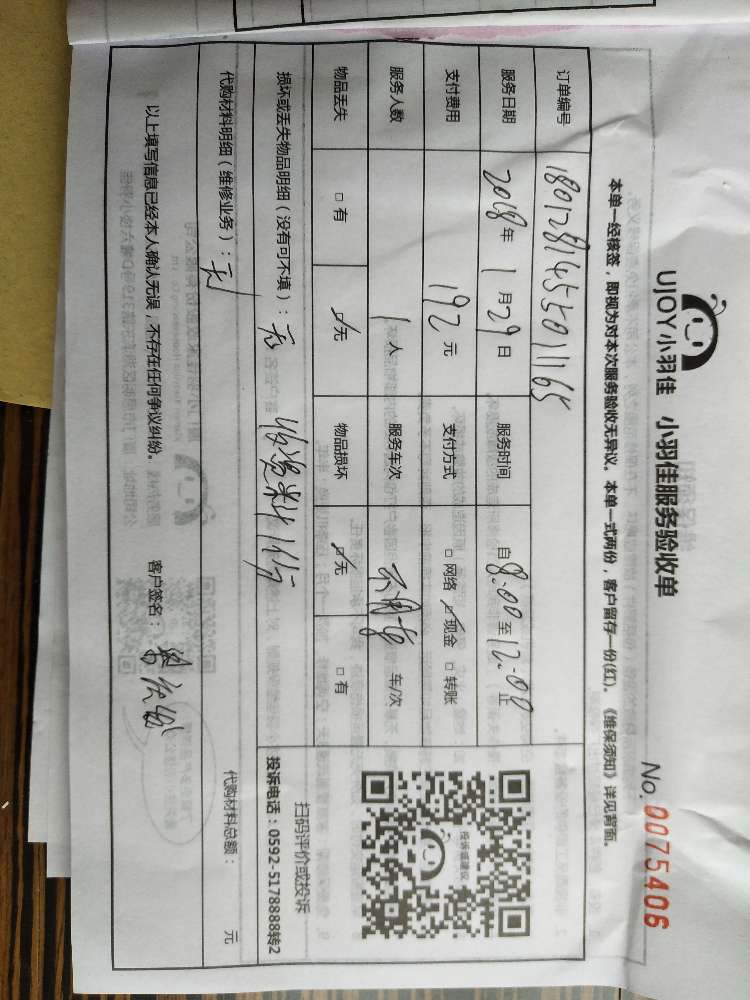 UJOY小羽佳 小羽佳服务验收单
No. 0075406
本单一经核签，即视为对本次服务验收无异议。本单一式两份，客户留存一份(红)。《维保须知》详见背面。
订单编号 180128145501165
服务日期 2018年1月29日 服务时间 自8:00至12:00止
支付费用 192元 支付方式 □网络 ☑现金 □转账
服务人数 1人 服务车次 车/次
物品丢失 □有 ☑无 物品损坏 ☑无 □有
损坏或丢失物品明细（没有可不填）：无
代购材料明细（维修业务）：无
代购材料总额： 元
以上填写信息已经本人确认无误，不存在任何争议纠纷。 客户签名：
投诉或建议
扫码评价或投诉
投诉电话：0592-5178888转2